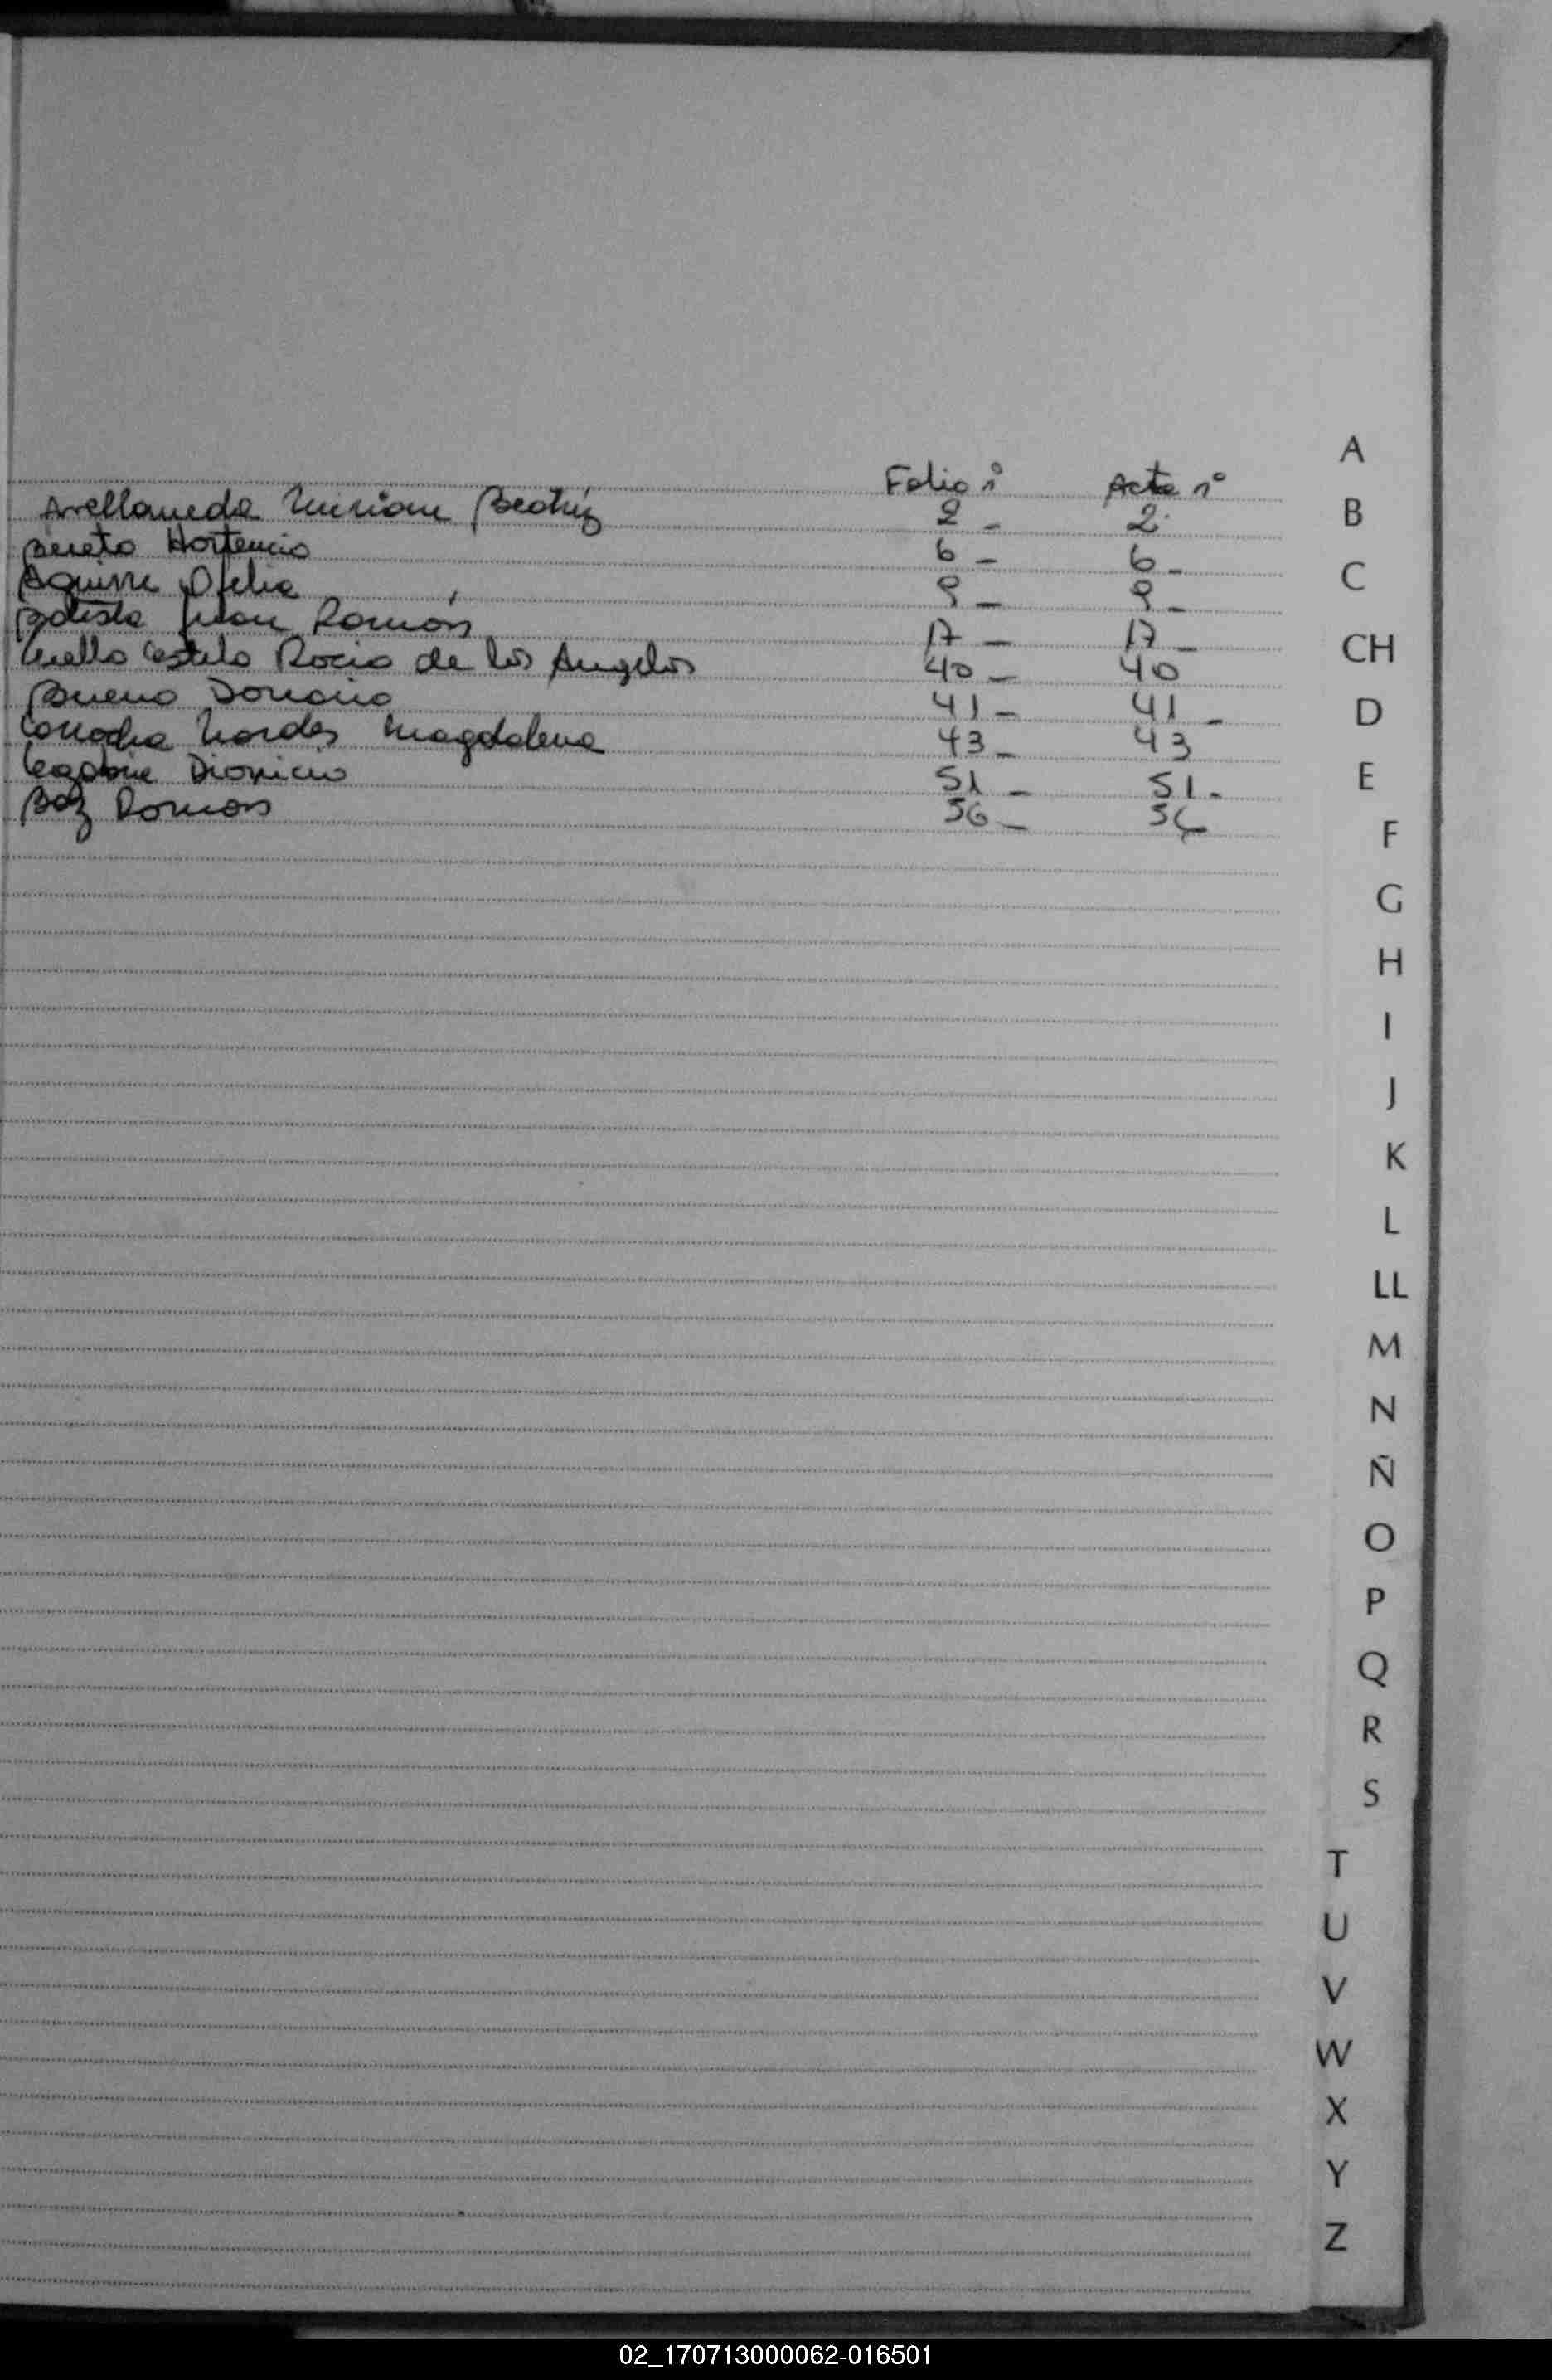 Folio nº Acta nº
Arellaneda Miriam Beatriz 2 - 2
Bereto Hortencio 6 - 6 -
Aguirre Ofelia 9 - 9 -
Batista Juan Ramón 17 - 17 -
Cuello Castilo Rocio de los Angeles 40 - 40
Bueno Donario 41 - 41 -
Magdalena 43 - 43
Dionicio 51 - 51 -
Baz Ramon 56 - 56
A
B
C
CH
D
E
F
G
H
I
J
K
L
LL
M
N
Ñ
O
P
Q
R
S
T
U
V
W
X
Y
Z
02_170713000062-016501